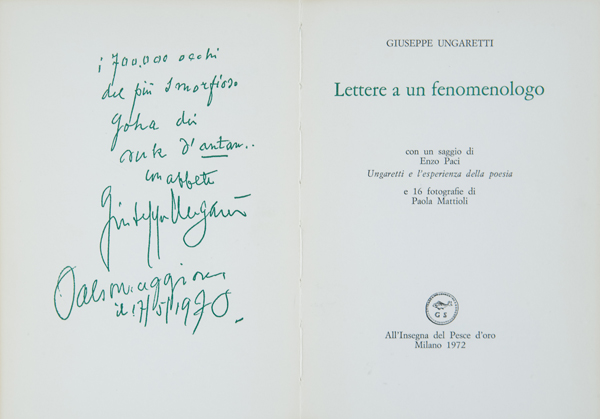 i 700.000 occhi
del più smorfioso
dei
d'antan..
con affetto
Giuseppe Ungaretti
Salsomaggiore
il 17/5/1970
GIUSEPPE UNGARETTI
Lettere a un fenomenologo
con un saggio di
Enzo Paci
Ungaretti e l'esperienza della poesia
e 16 fotografie di
Paola Mattioli
G S
All'Insegna del Pesce d'oro
Milano 1972